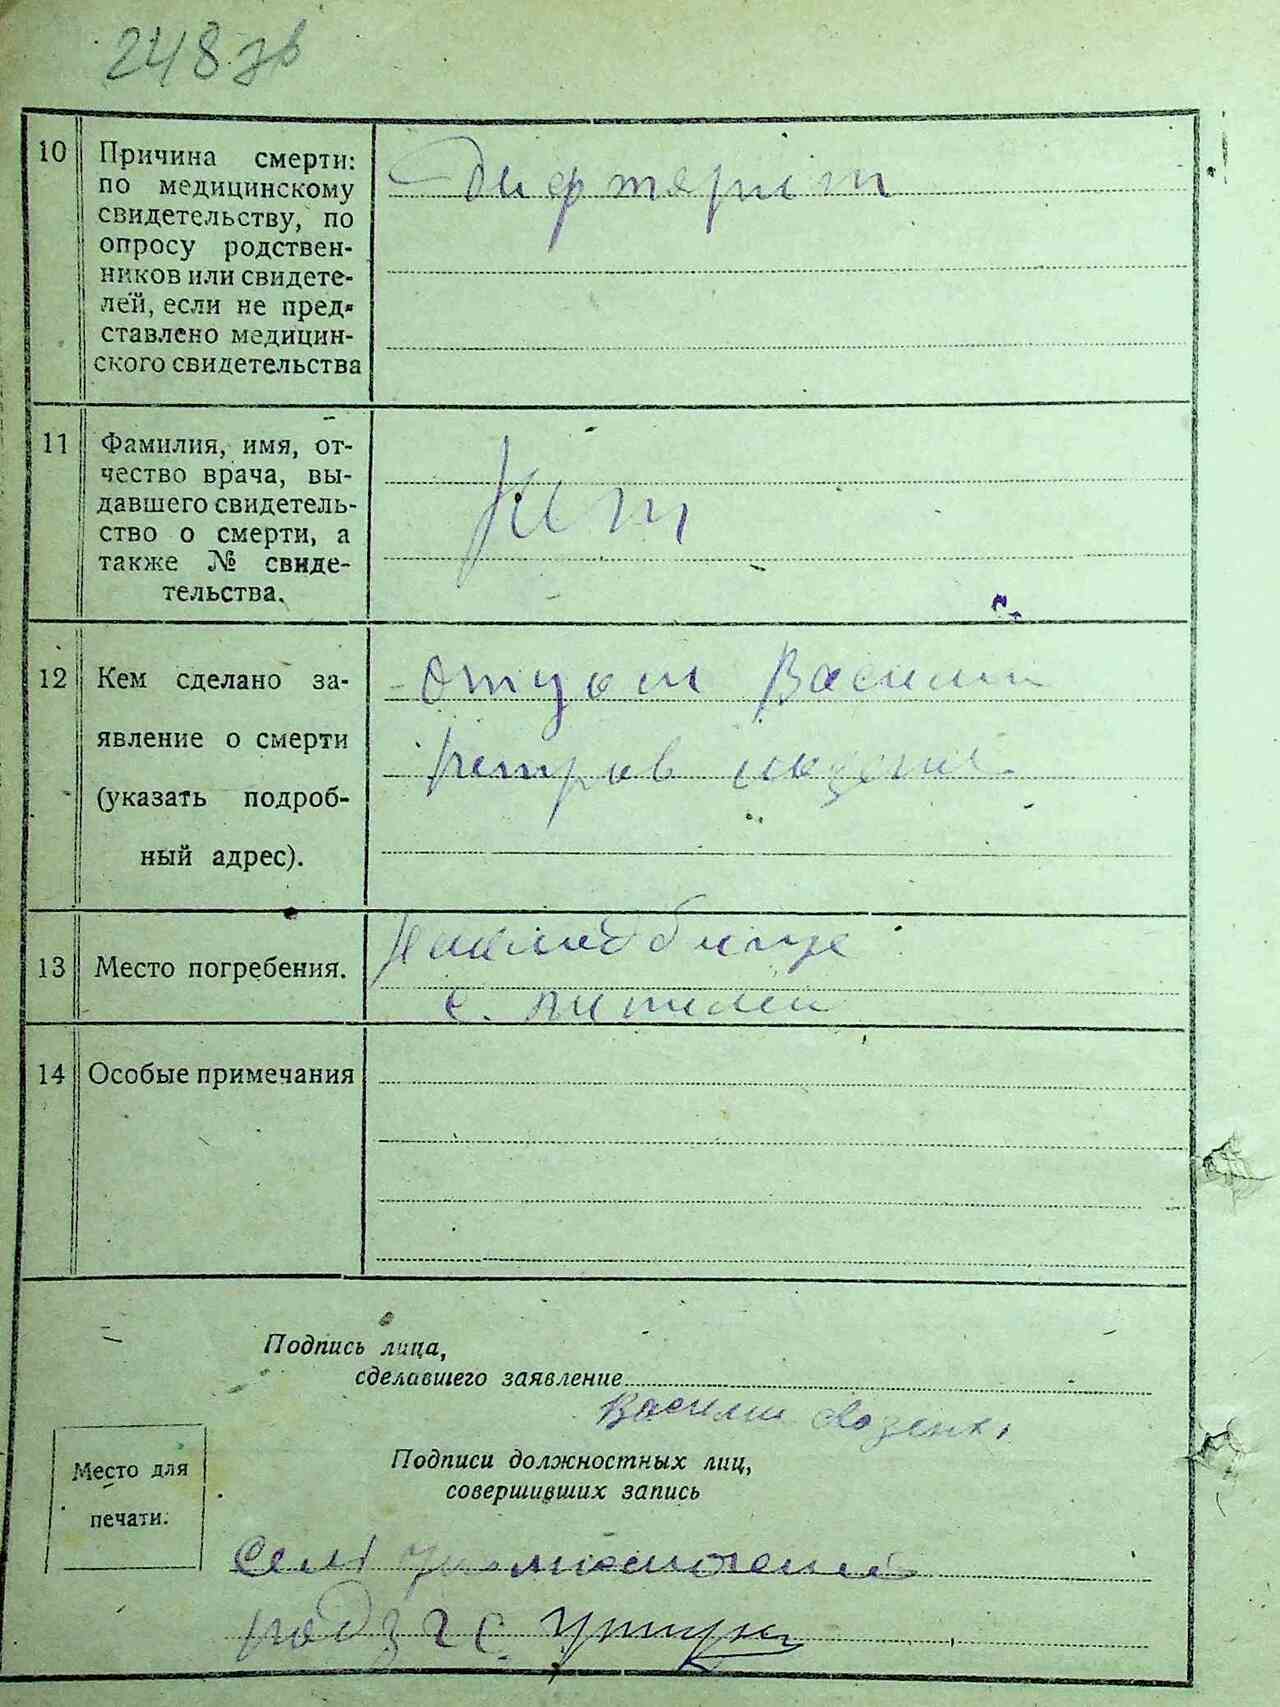 248 зв
10 Причина смерти:
по медицинскому
свидетельству, по
опросу родствен-
ников или свидете-
лей, если не пред-
ставлено медицин-
ского свидетельства
Дифтерит
11 Фамилия, имя, от-
чество врача, вы-
давшего свидетель-
ство о смерти, а
также № свиде-
тельства.
Нет
12 Кем сделано за-
явление о смерти
(указать подроб-
ный адрес).
Отцом Василий
13 Место погребения.
14 Особые примечания
Подпись лица,
сделавшего заявление
Василий
Подписи должностных лиц,
совершивших запись
Место для
печати.